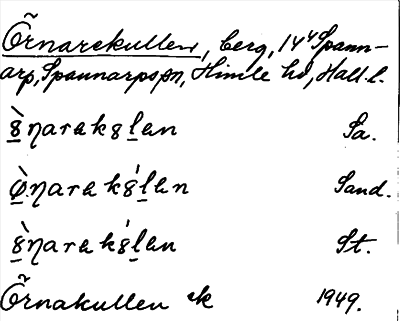 Õrnarekullen, berg, 1⁴⁴ Spann-
arp, Spannarps sn, Himle hd, Hall. l.
8̱̀ŋarak8ḻan Sa.
ø̱̀ŋarak8́ḻan Sand.
8̱̀ŋarak8́ḻan St.
Õrnakullen ek 1949.